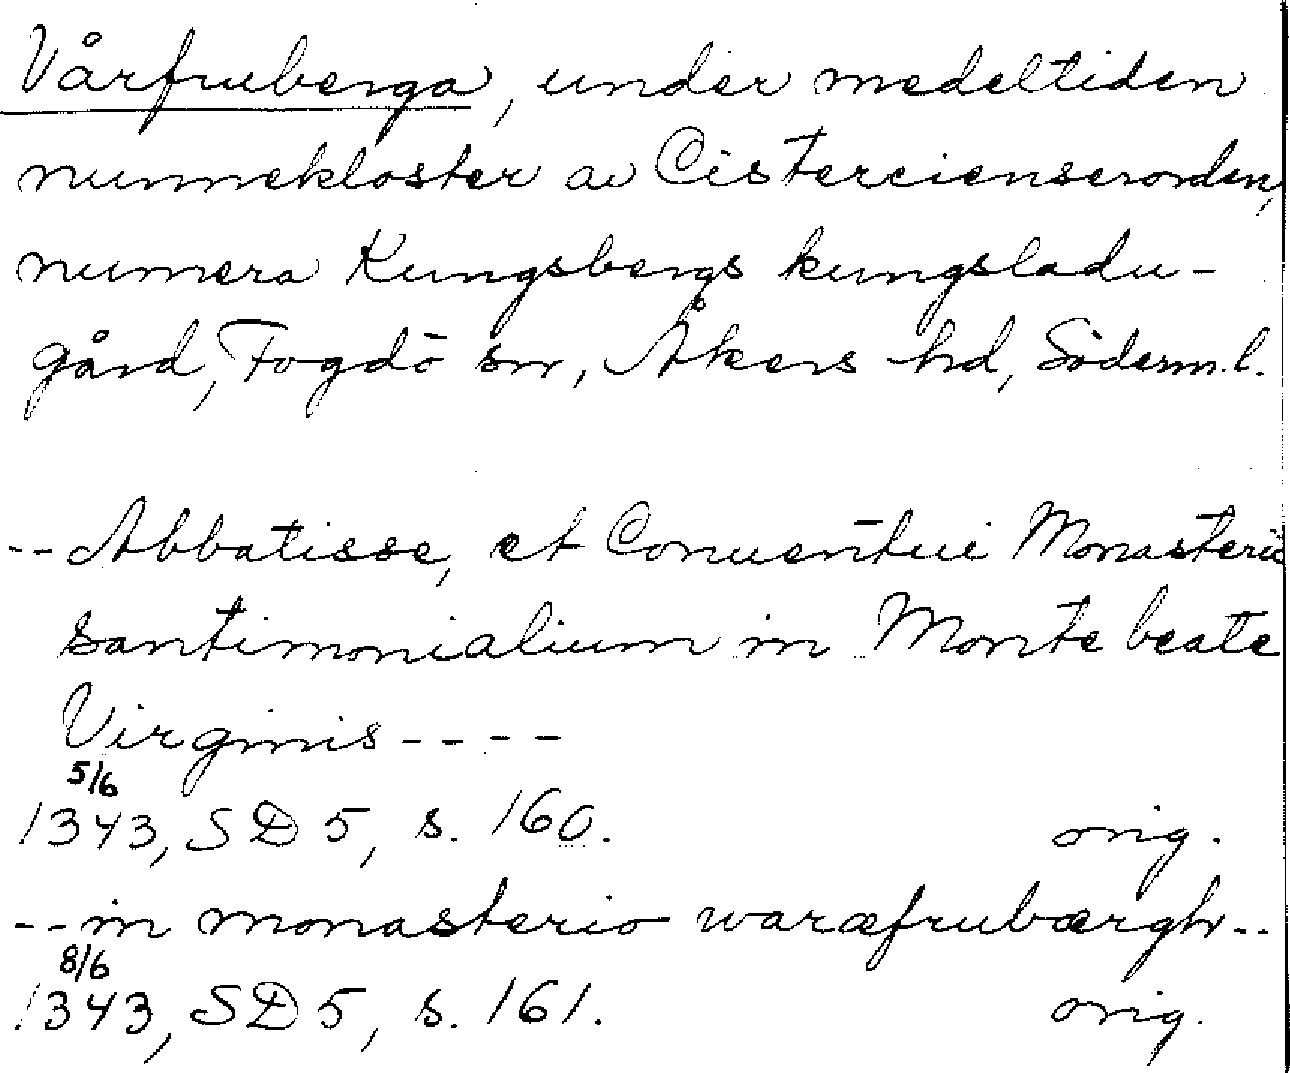 Vårfruberga, under medeltiden
nunnekloster av Cistercienserorden,
numera Kungsbergs kungsladu-
gård, Fogdö sn, Åkers hd, Söderm.l.
-- Abbatisse, et Conuentui Monasterii
santimonialium in Monte beate
Virginis ----
5/6
1343, SD 5, s. 160. orig.
-- in monasterio waræfrubærgh --
8/6
1343, SD 5, s. 161. orig.